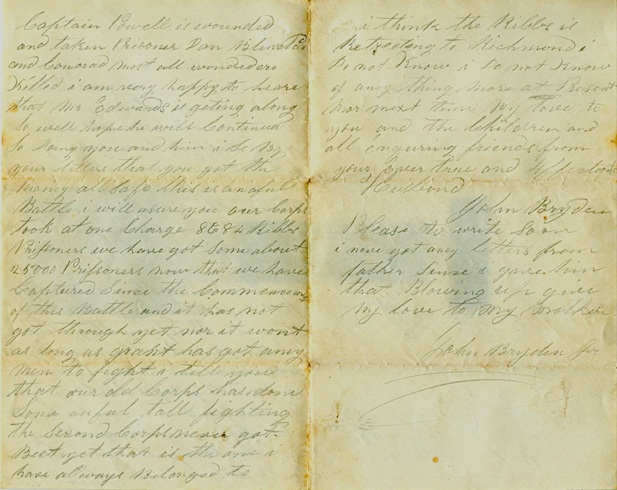 Captain Powell is wounded
and taken Prisoner Dan
and Conorad most all wounded or
Killed i am very happy to heare
that Mr Edwards is geting along
so well hope he will Continued
to Dany you and him i Se By
your letters that you got the
money all Safe this is an aful
Battle i will asure you our Corps
took at one Charge 8684 Ribbs
Prisoners we have got Some about
25000 Prissoners now that we have
Captured Since the Commencung
of this Battle and it has not
got through yet nor it wont
as long as grant has got anny
men to fight i tell you
that our old Corps has done
Some auful tall fighting
the Second Corps never got
Beet yet that is the one i
have allways Belonged to
i think the Ribbs is
Retreating to Richmond i
Do not Know i Do not Know
of any thing more at Present
Nor next time My love to
you and the Children and
all enquring friends from
your Ever true and
Husbond
John Bryden
Please to write Soon
i never got any letters from
father Since i gave him
that Blowing up give
my love to My
John Bryden Jr